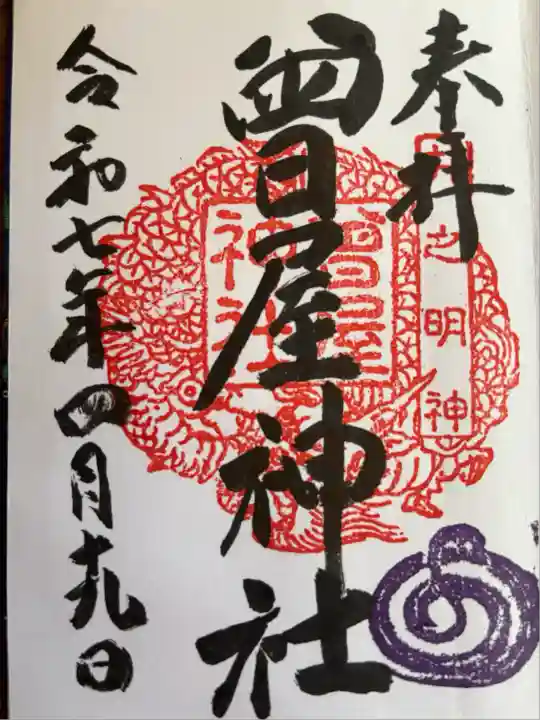 奉拝
之明神
曽屋神社
曽屋
神社
令和七年四月十九日